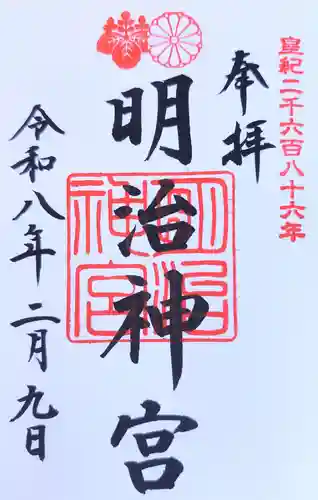 皇紀二千六百八十六年
奉拝
明治神宮
明治
神宮
令和八年二月九日